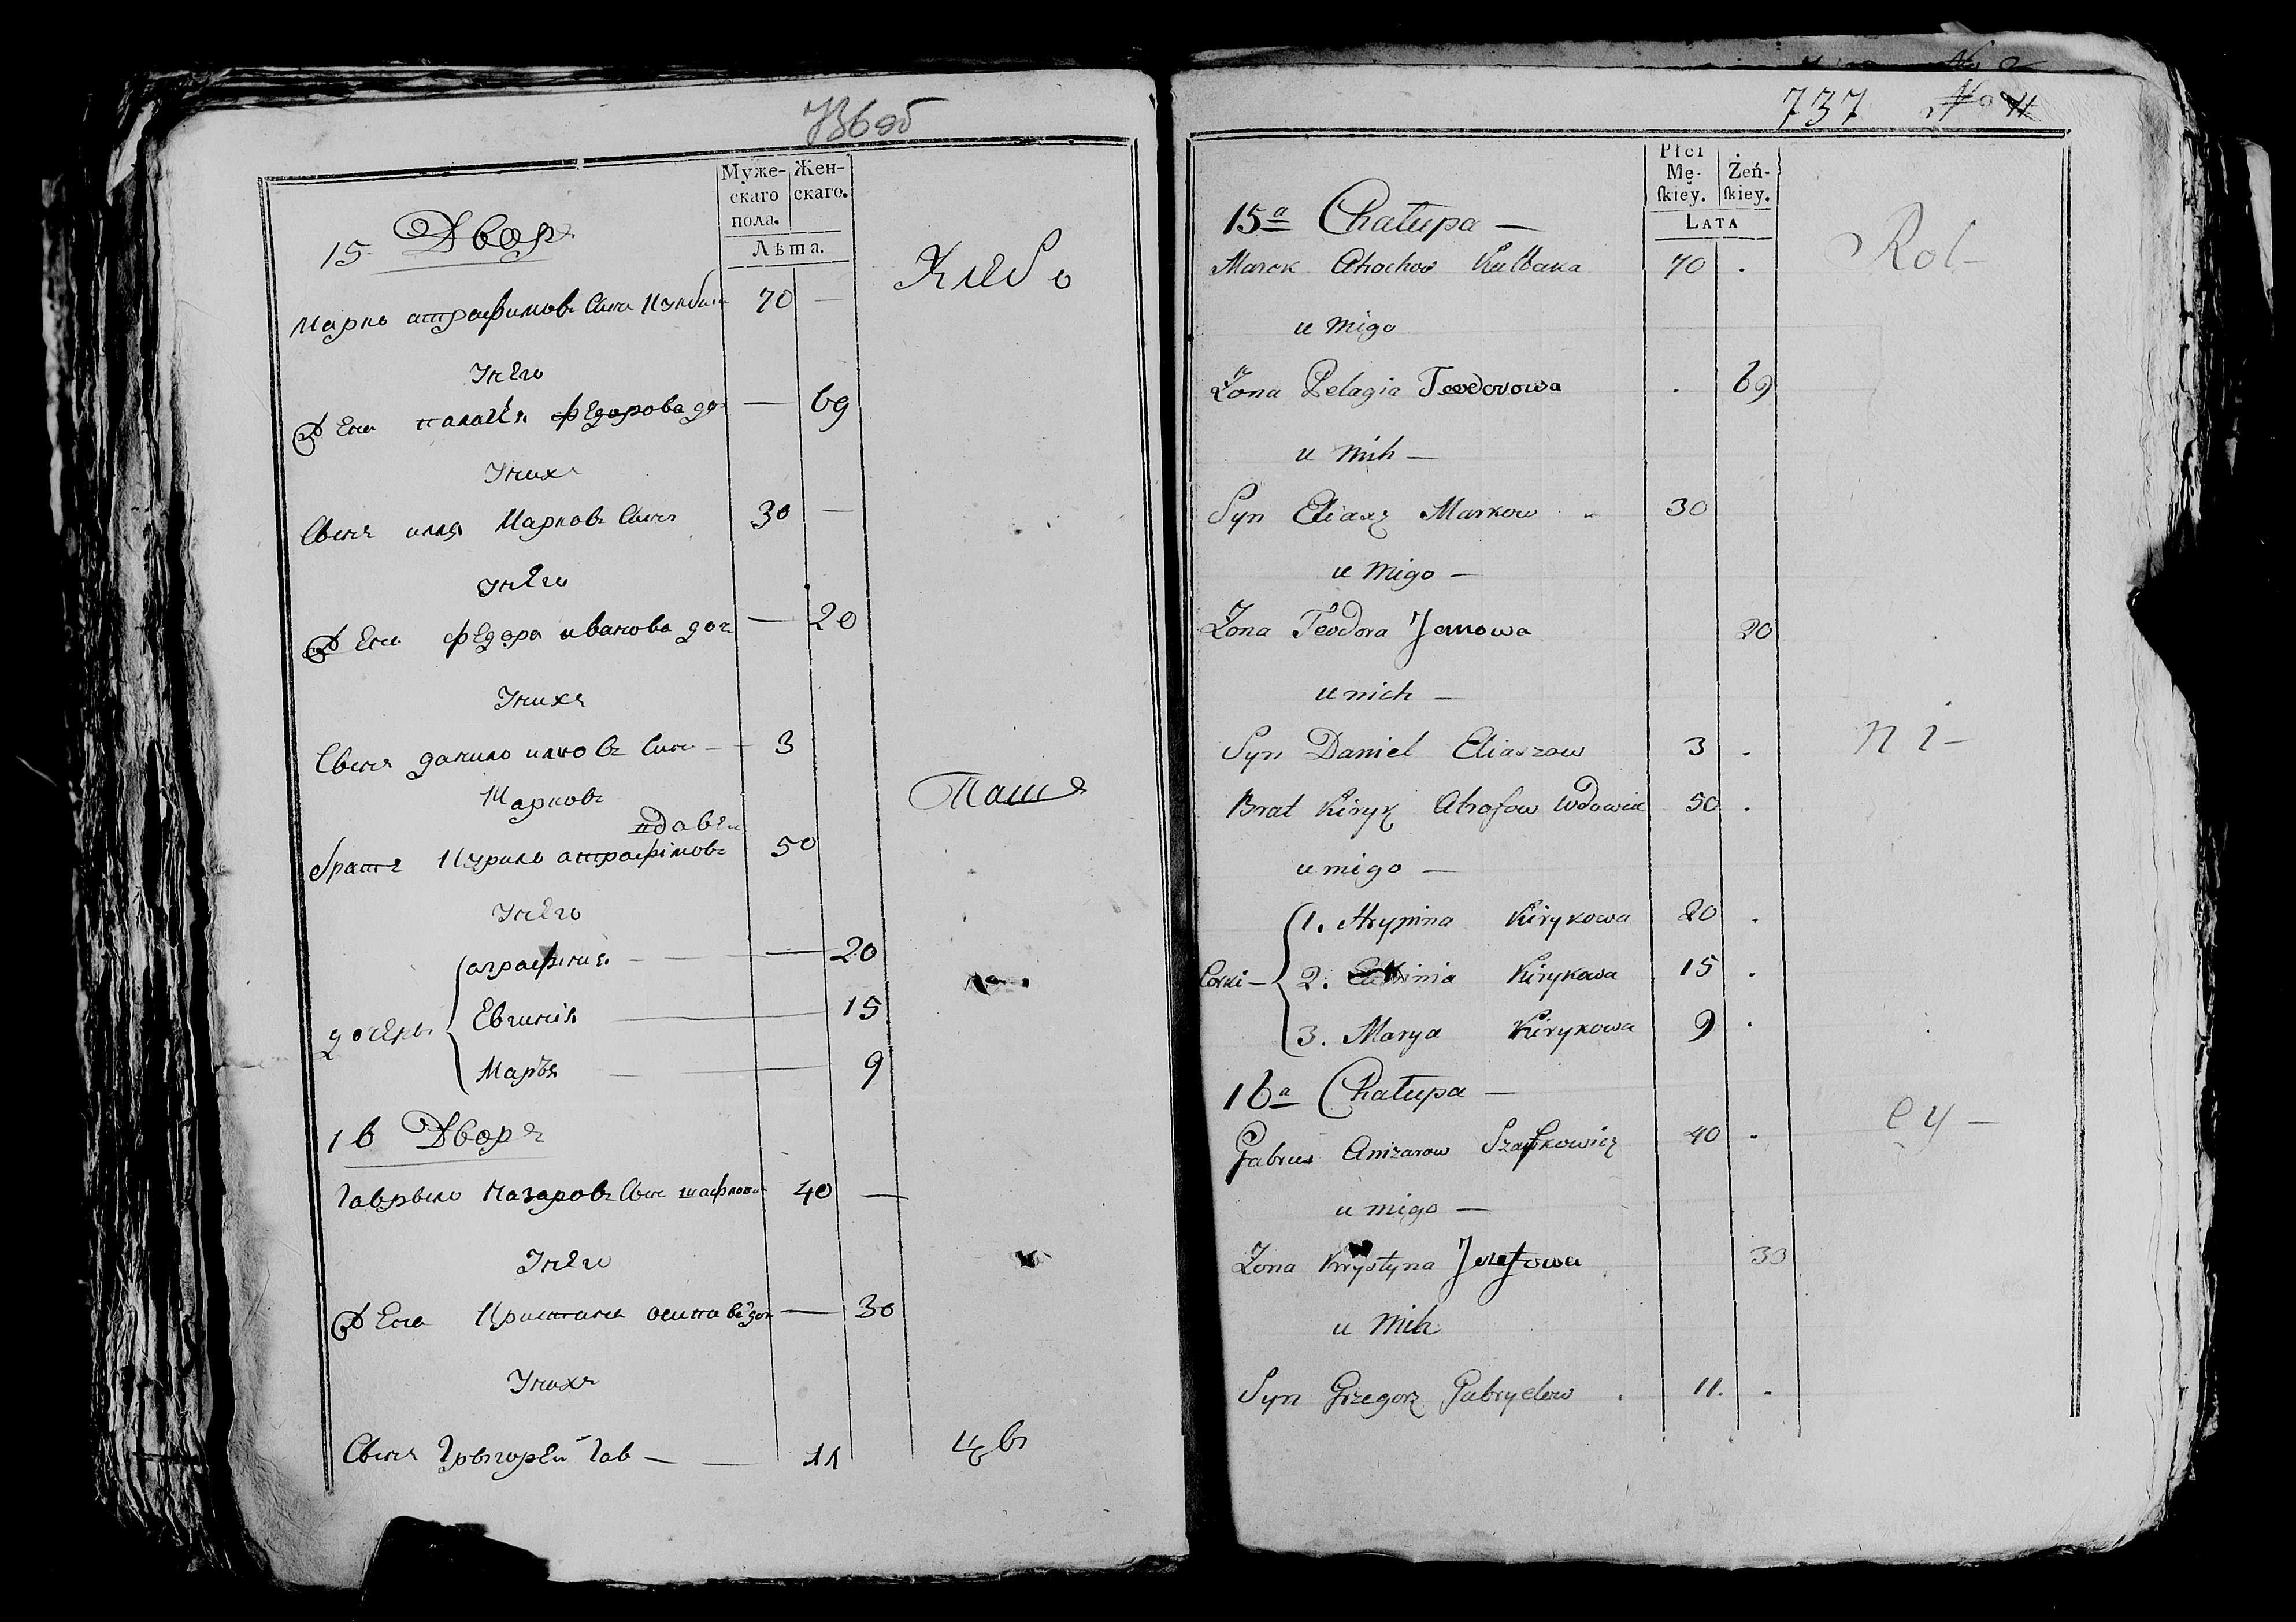 736об
Муже-
скаго
пола.
Жен-
скаго.
Лѣта.
15 Дворъ
Хлебо
Марко атрафимовъ Синъ 70 —
Унего
Жена палагѣя федорова до — 69
Унихъ
Свинъ илля Марковъ Синъ 30 —
унего
Жена федора иванова доч — 20
Унихъ
Свинъ данило илковъ Синъ — 3
Марковъ
Пашъ
вдавец
братъ Курило атрафімовъ 50
Унего
дочеръ
аграфина — 20
Евгинія — 15
Маръя — 9
16 Дворъ
Гаврыло Назаровъ Свинъ 40 —
Унего
Жена Кристина — 30
Унихъ
Свинъ Грыгорей Гав — 11
цы
737 No 11
Płci
Mę-
skiey.
Żeń-
skiey.
LATA
15a Chałupa —
Rol-
Marek Kulbaka 70 .
u niego
Żona Pelagia Teodorowa . 69
u nich —
Syn Eliasz Markow 30
u niego —
Żona Teodora Janowa 20
u nich —
Syn Daniel Eliaszow 3 .
ni-
Brat Kiryk Atrofow wdowiec 50 .
u niego —
Corki —
1. Hrypina Kirykowa 20 .
2. Kirykowa 15 .
3. Marya Kirykowa 9 .
16a Chałupa —
cy —
Gabriel Szafkowicz 40 .
u niego —
Żona Krystyna Jozefowa 30
u nich
Syn Grzegorz Gabryelow . 11. .